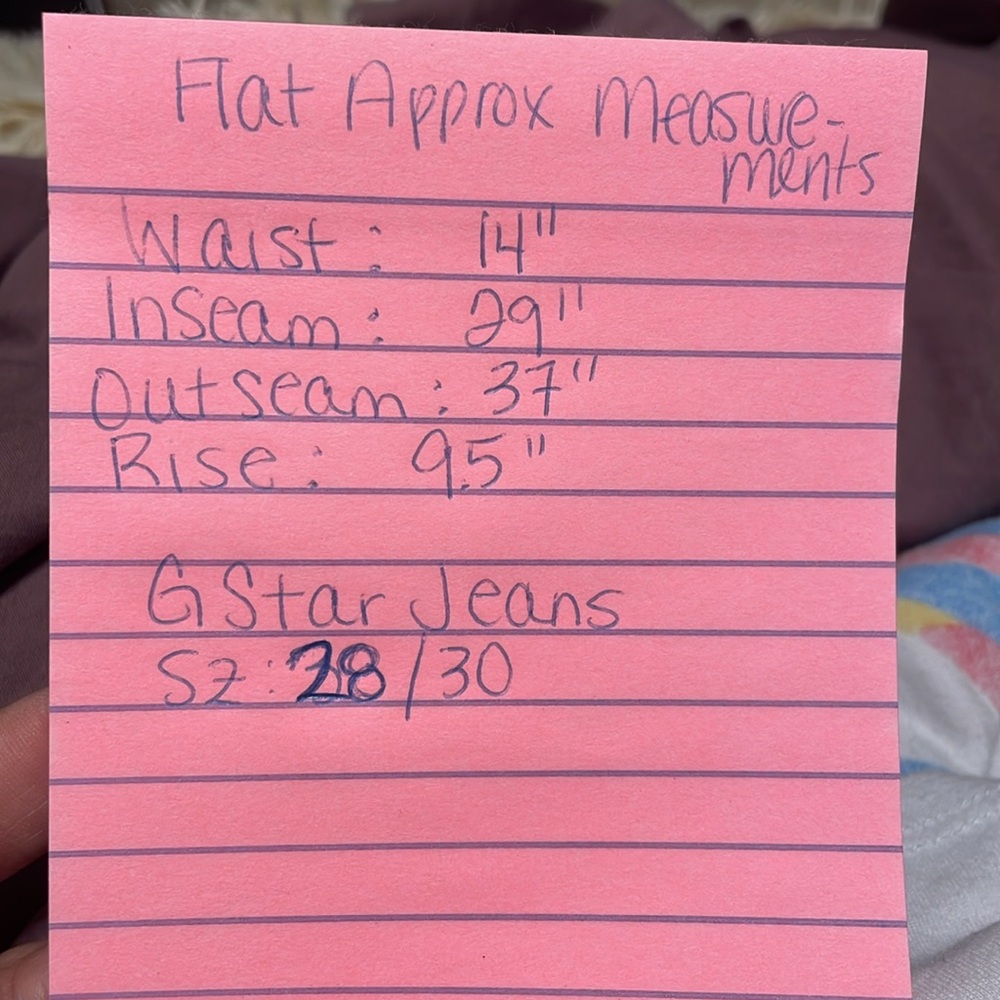 Flat Approx Measure-
ments
Waist: 14"
Inseam: 29"
Outseam: 37"
Rise: 9.5"
G Star Jeans
Sz: 28/30